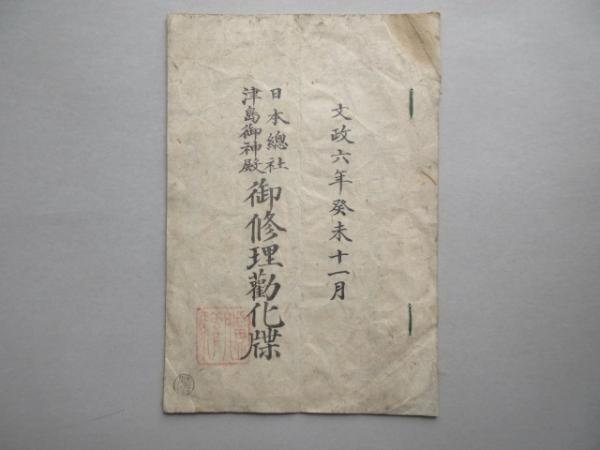 文政六年癸未十一月
日本總社
津島御神殿
御修理勸化牒